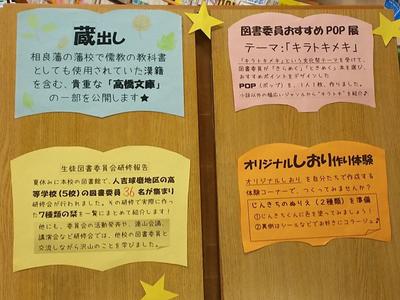 蔵出し
相良藩の藩校で儒教の教科書
としても使用されていた漢籍
を含む、貴重な「高橋文庫」
の一部を公開します★
図書委員おすすめPOP展
テーマ:「キラトキメキ」
「キラトキメキ」という文化祭テーマを受けて、
図書委員が「きらめく」「ときめく」本を選び、
おすすめポイントをデザインした
POP(ポップ)を、1人1枚、作りました。
小説以外の幅広いジャンルから"キラトキ"を紹介♪
生徒図書委員会研修報告
夏休みに本校の図書館で、人吉球磨地区の高
等学校(5校)の図書委員36名が集まり
研修会が行われました。その研修で実際に作っ
た7種類の栞を一覧にまとめて紹介します!
他にも、委員会の活動発表や、連山会議、
講演会など研修会では、他校の図書委員と
交流しながら沢山のことを学びました。
オリジナルしおり作り体験
オリジナルしおりを自分たちで作成する
体験コーナーで、つくってみませんか?
じんきちのぬりえ(2種類)を準備
①じんきちくんに色を塗ってみましょう!
②裏側はシールなどでお好きにコラージュ♪